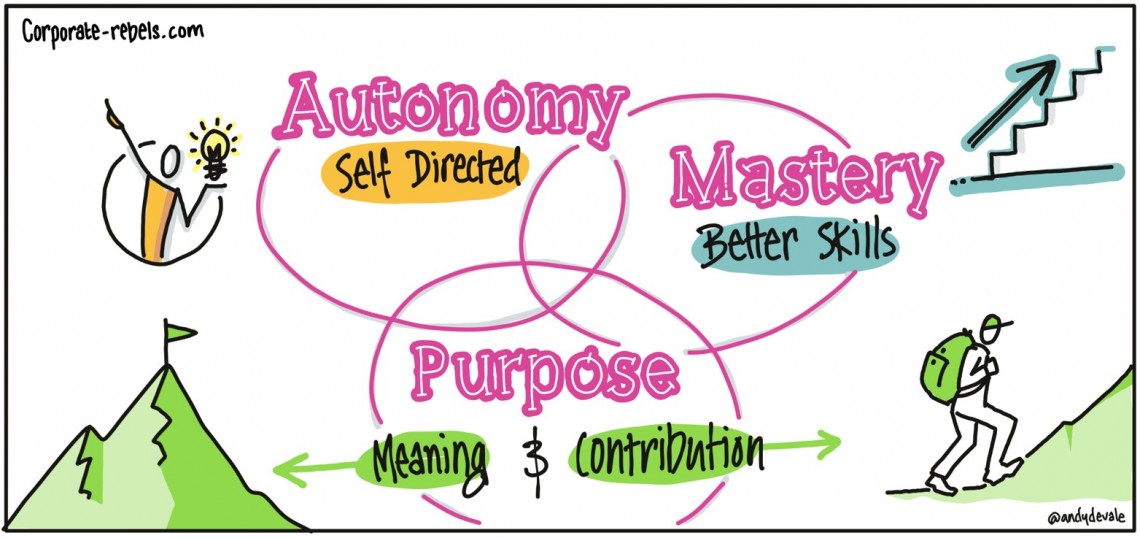 Corporate-rebels.com
Autonomy
Self Directed
Mastery
Better Skills
Purpose
Meaning & Contribution
@andydevale